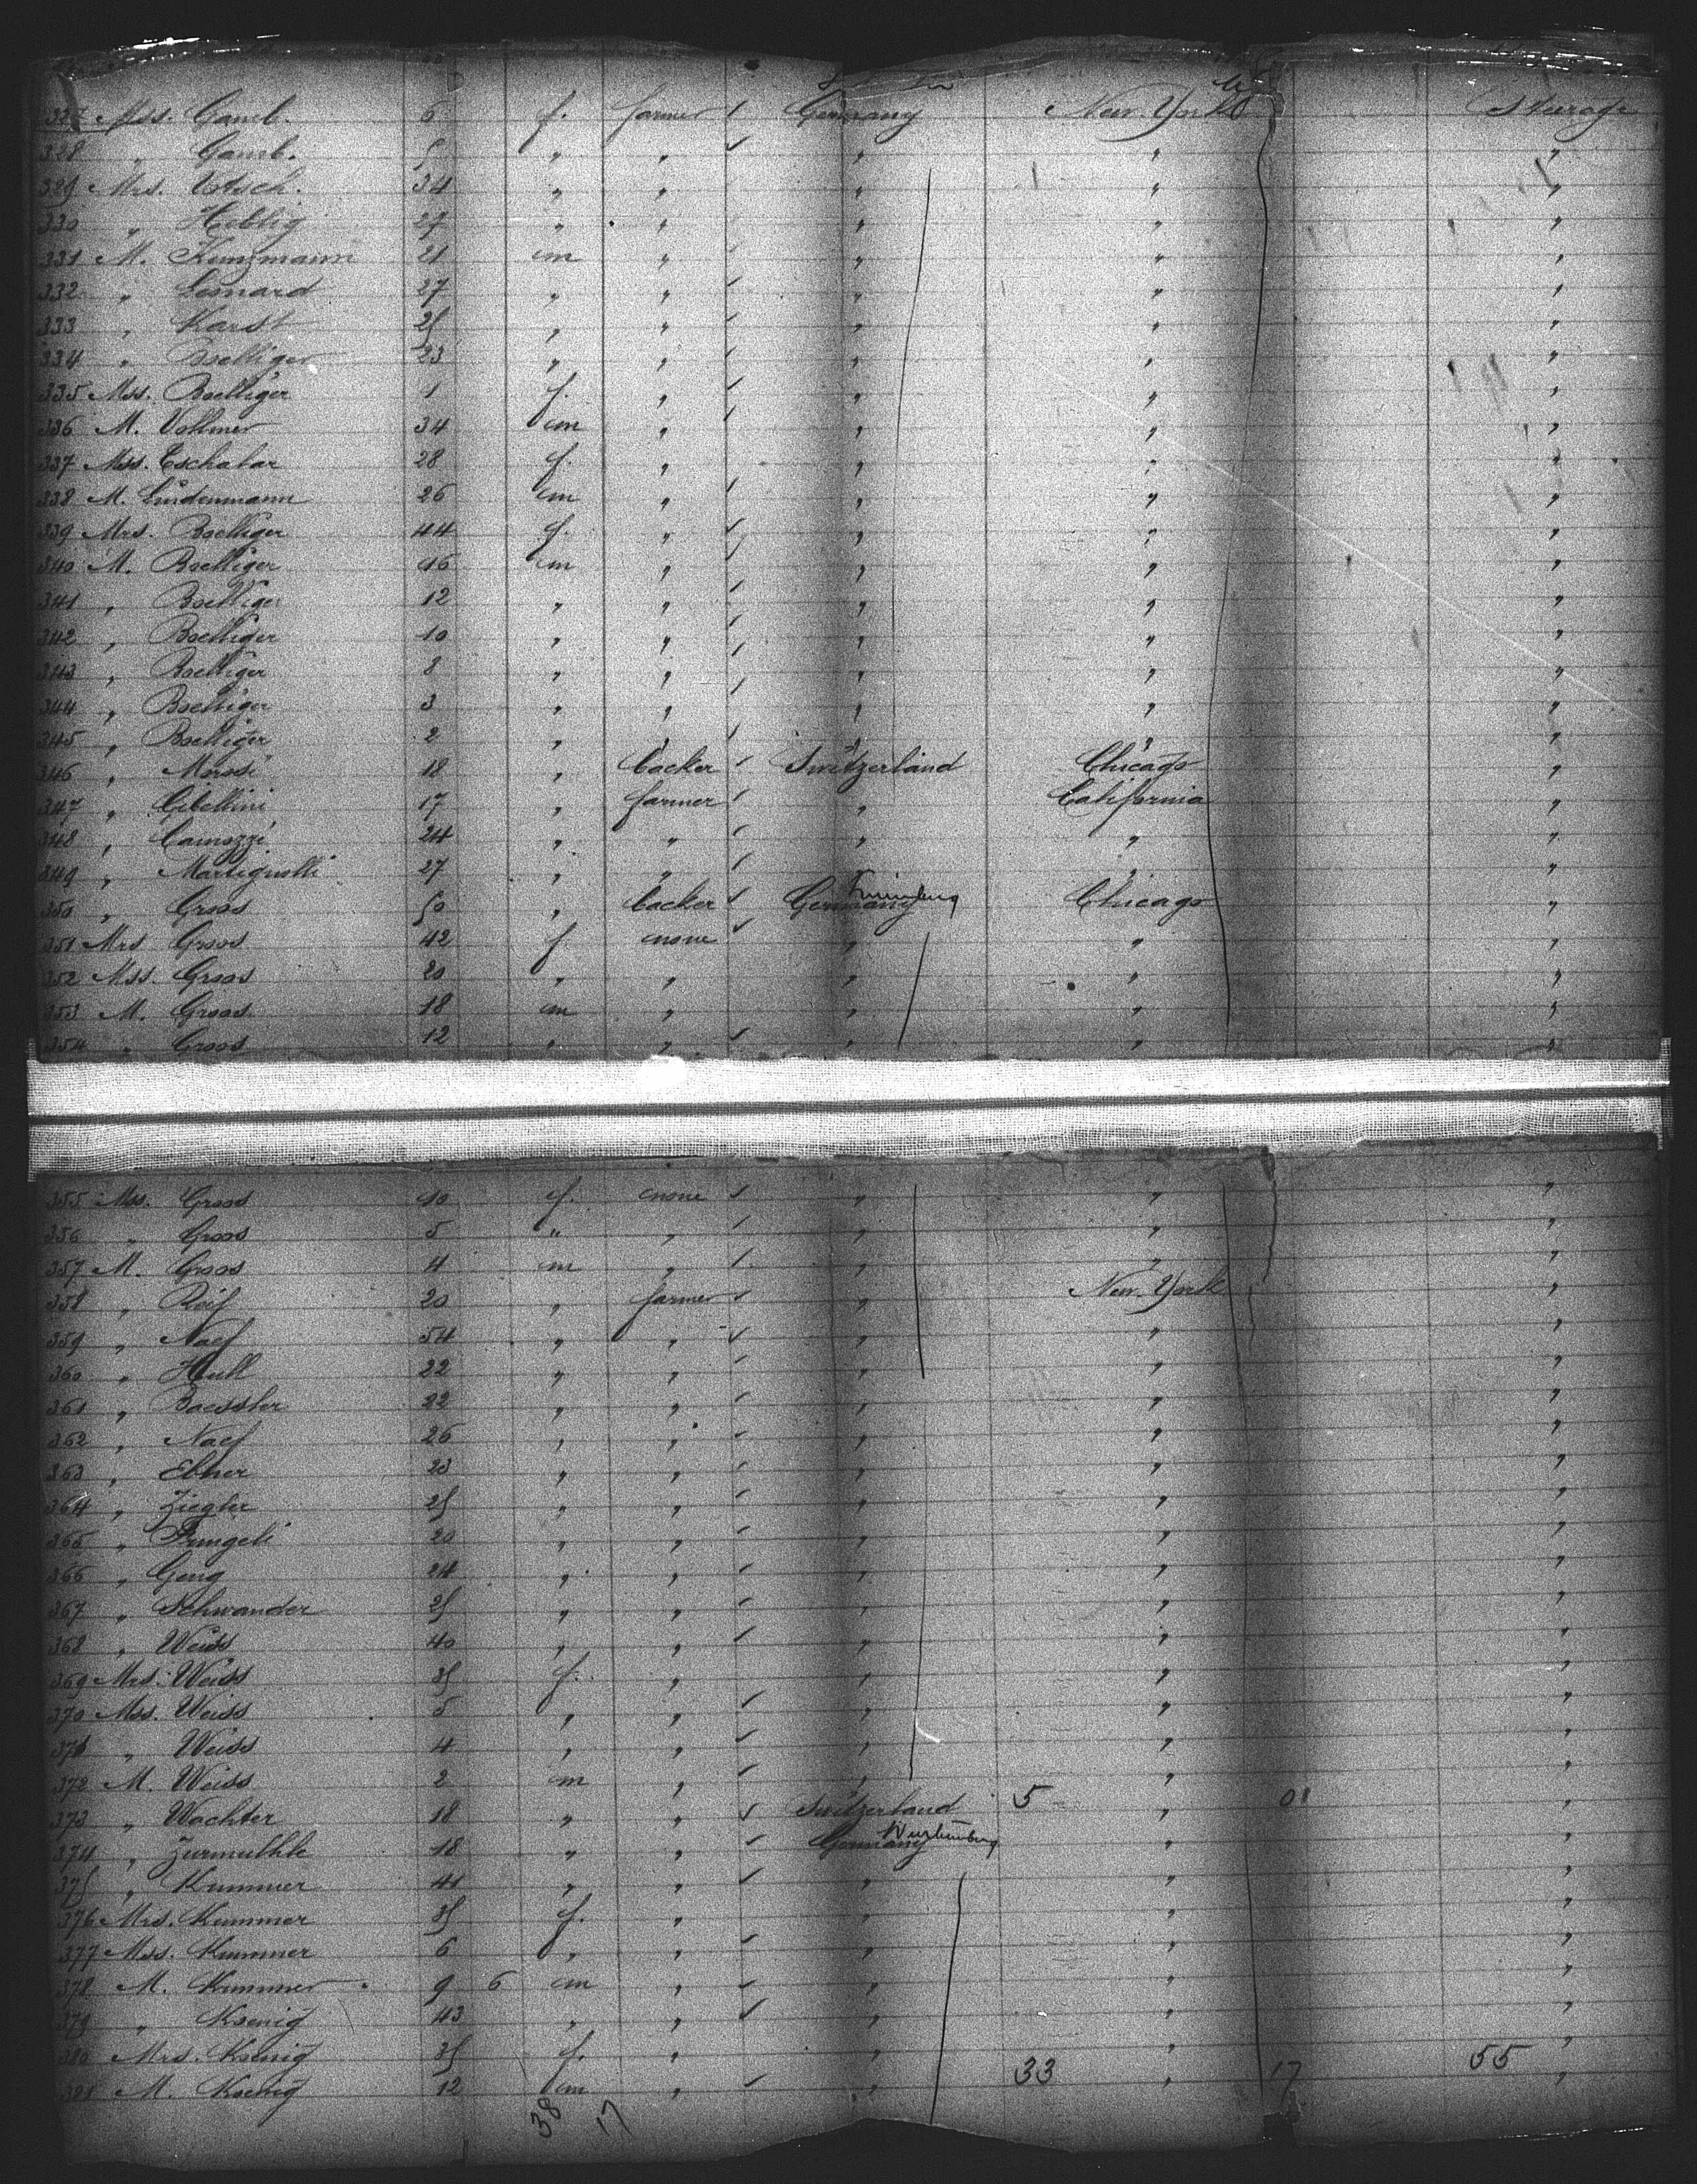 327 Mss. Gamb. 6 f. farmer Germany New. York Steerage
328 " Gamb. 5 " " " " "
329 Mrs. 34 " " " " "
330 " Heblig 27 " " " " "
331 M. Kunzmann 21 m " " " "
332 " Leonard 27 " " " " "
333 " Karst 25 " " " " "
334 " Boelliger 23 " " " " "
335 Mss. Boelliger 1 f. " " " "
336 M. Vollmer 34 m " " " "
337 Mss. Eschalar 28 f. " " " "
338 M. Lindenmann 26 m " " " "
339 Mrs. Boelliger 44 f. " " " "
340 M. Boelliger 16 m " " " "
341 " Boelliger 12 " " " " "
342 " Boelliger 10 " " " " "
343 " Boelliger 8 " " " " "
344 " Boelliger 3 " " " " "
345 " Boelliger 2 " " " " "
346 " Morosi 18 " backer Switzerland Chicago "
347 " Cibellini 17 " farmer " California "
348 " Camozzi 24 " " " " "
349 " Martignolli 27 " " " " "
350 " Groos 50 " backer Germany Chicago "
351 Mrs Groos 42 f none " " "
352 Mss. Groos 20 " " " " "
353 M. Groos 18 m " " " "
354 " Groos 12 " " " " "
355 Mss. Groos 10 f. none " " "
356 " Groos 5 " " " " "
357 M. Groos 4 m " " " "
358 " Reif 20 " farmer " New. York "
359 " Naef 54 " " " " "
360 " 22 " " " " "
361 " Baessler 22 " " " " "
362 " Naef 26 " " " " "
363 " Ebner 23 " " " " "
364 " Ziegler 25 " " " " "
365 " 20 " " " " "
366 " Geng 24 " " " " "
367 " Schwander 25 " " " " "
368 " Weiss 40 " " " " "
369 Mrs. Weiss 35 f. " " " "
370 Mss. Weiss 5 " " " " "
371 " Weiss 4 " " " " "
372 M. Weiss 2 m " " " "
373 " Wachter 18 " " Switzerland 5 " 01
374 " Zurmuhle 18 " " Germany Wurtemberg " "
375 " Kummer 41 " " " " "
376 Mrs. Kummer 35 f. " " " "
377 Mss. Kummer 6 " " " " "
378 M. Kummer 9 6 m " " " "
379 " Koenig 43 " " " " "
380 Mrs. Koenig 35 f. " " " "
381 M. Koenig 12 m " " 33 " 17 55 "
38 17